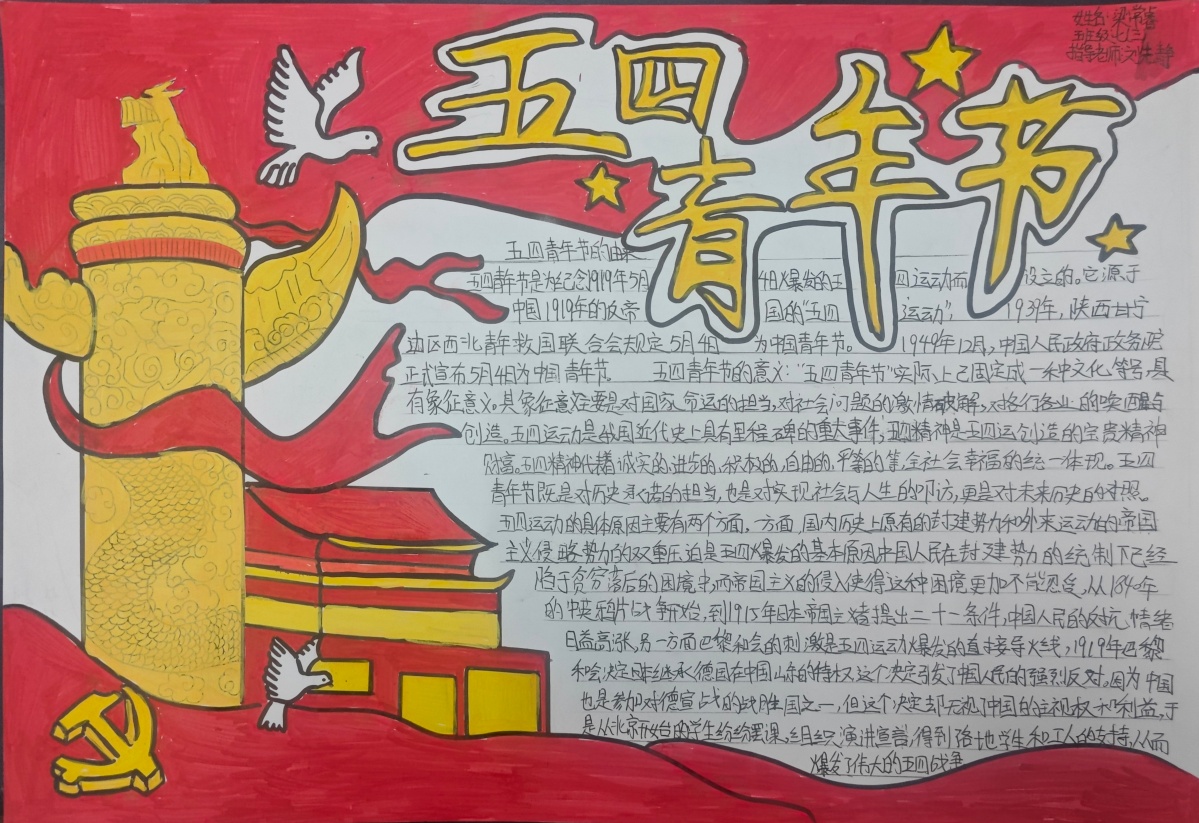 五四青年节
姓名:梁常睿
班级:七三
指导老师:刘先静
五四青年节的由来
五四青年节是为纪念1919年5月4日爆发的五四运动而设立的。它源于
中国1919年的反帝国的“五四运动”,1939年,陕西甘宁
边区西北青年救国联合会规定5月4日为中国青年节。1949年12月,中国人民政府政务院
正式宣布5月4日为中国青年节。 五四青年节的意义:“五四青年节”实际上已固定成一种文化符号,具
有象征意义。其象征意义主要是对国家命运的担当,对社会问题的激情破解,对各行各业的唤醒与
创造。五四运动是我国近代史上具有里程碑的重大事件,五四精神是五四运创造的宝贵精神
财富。五四精神代表着诚实的,进步的,积极的,自由的,平等的等,全社会幸福的统一体现。五四
青年节既是对历史承诺的担当,也是对实现社会与人生的叩访,更是对未来历史的对照。
五四运动的具体原因主要有两个方面,一方面,国内历史上原有的封建势力和外来运动的帝国
主义侵略势力的双重压迫是五四爆发的基本原因中国人民在封建势力的统制下已经
陷于贫穷落后的困境中,而帝国主义的侵入使得这种困境更加不能忍受,从1840年
的中英鸦片战争开始,到1915年日本帝国主义者提出二十一条件,中国人民的反抗情绪
日益高涨,另一方面巴黎和会的刺激是五四运动爆发的直接导火线,1919年巴黎
和会决定日本继承德国在中国山东的特权,这个决定引发了中国人民的强烈反对。因为中国
也是参加对德宣战的战胜国之一,但这个决定却无视了中国的主权和利益,于
是从北京开始的学生纷纷罢课,组织演讲宣誓,得到各地学生和工人的支持,从而
爆发了伟大的五四战争